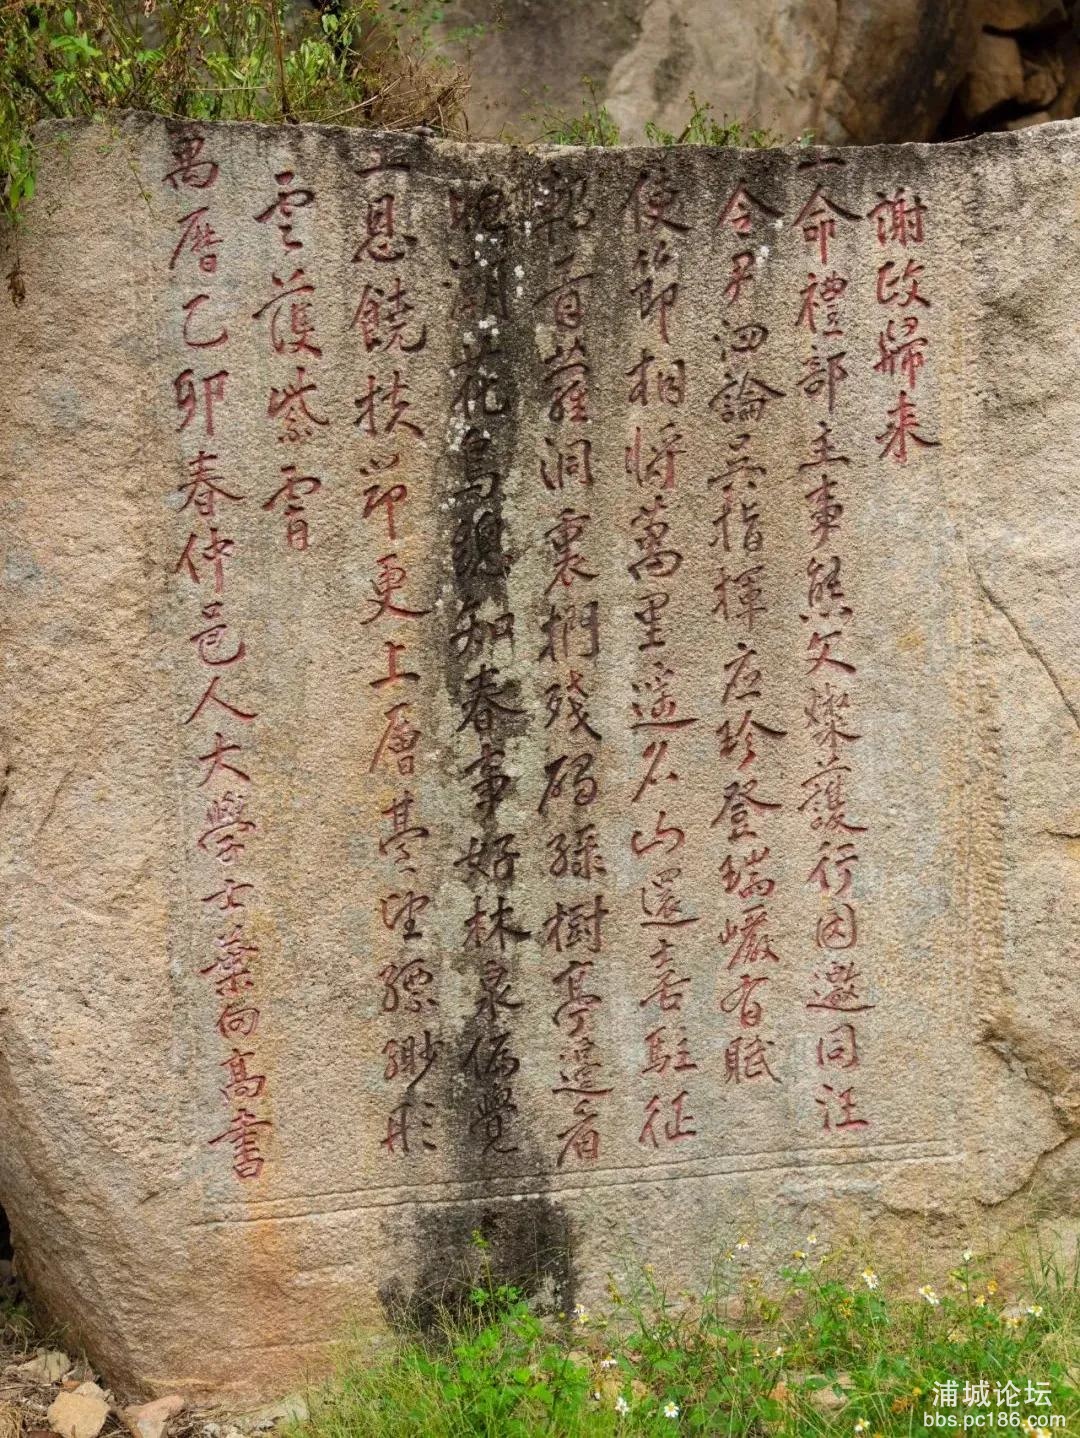 謝政歸来
上命禮部主事熊文燦護行因邀同汪
令尹泗論吳指揮应珍登瑞巖有賦
使節相將萬里遥名山還喜駐征
軺 蘿洞裏捫残碣緑樹亭邊看
晚潮花鳥總知春事好林泉偏覺
上恩饒扶笻更上層臺望縹緲彤
雲護紫霄
萬曆乙卯春仲邑人大學士葉向高書
浦城论坛
bbs.pc186.com